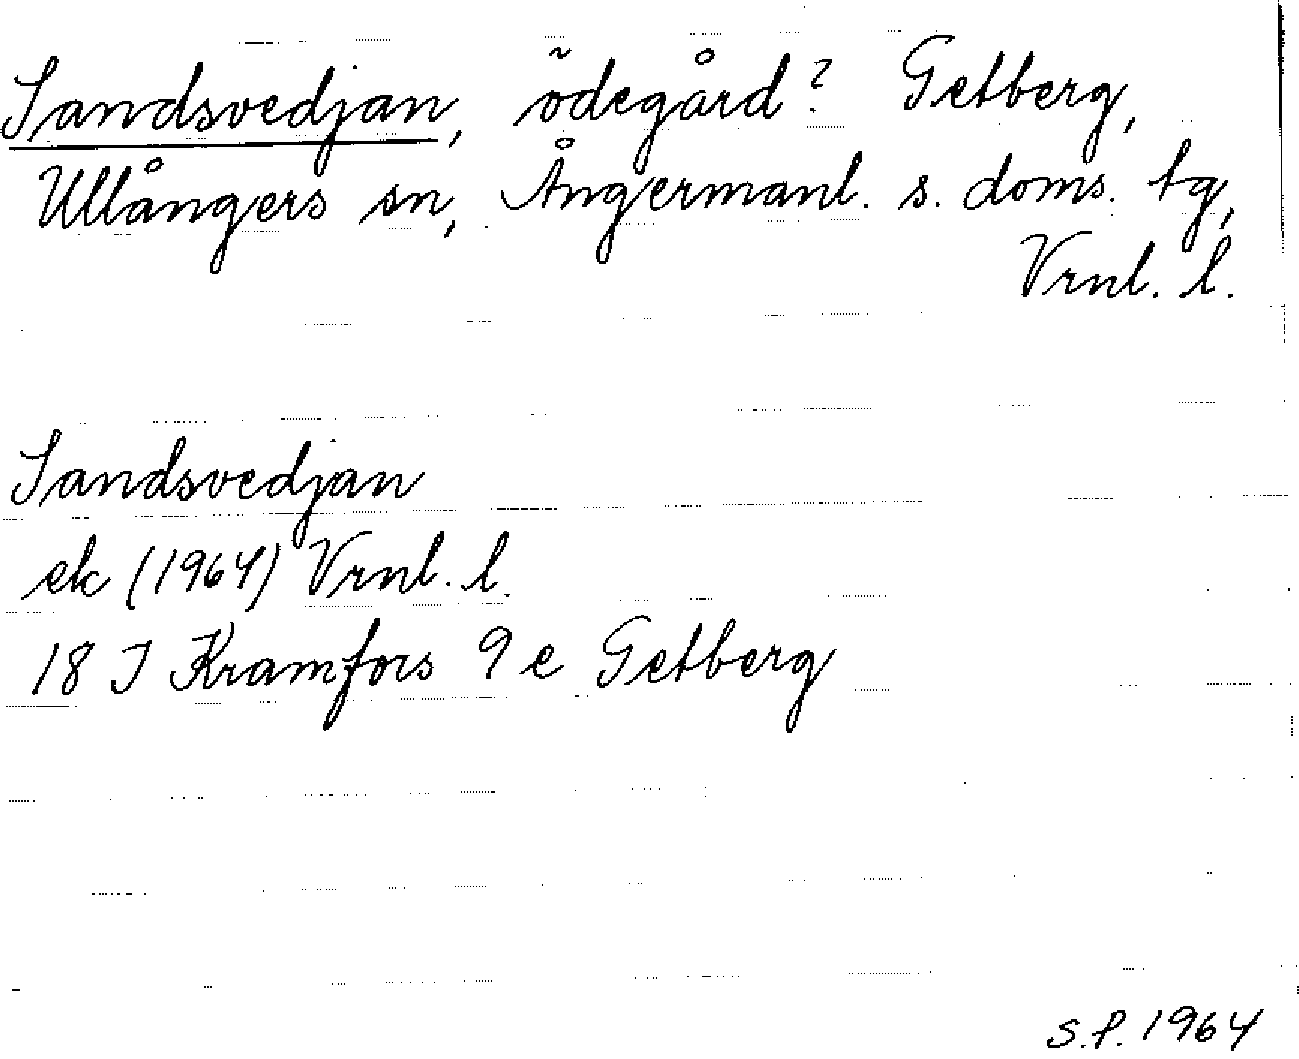 Sandsvedjan, ödegård? Getberg,
Ullångers sn, Ångermanl. s. doms. tg,
Vrnl. l.
Sandsvedjan
ek (1964) Vrnl. l.
18 I Kramfors 9 e Getberg
S.P. 1964